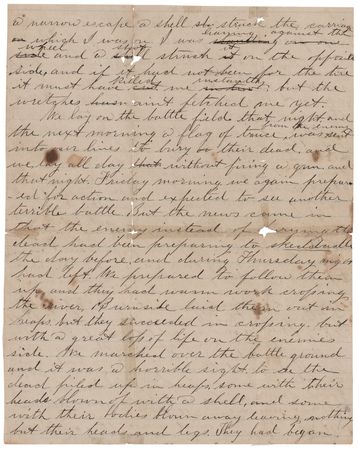 a narrow escape a shell struck the carriage
on which I was I was leaning against the
wheel and a shot struck it on the opposite
side, and if it had not been for the tire
it must have killed me instantly, but the
wretches hasn't fetched me yet.
We lay on the battle field that night and
the next morning a flag of truce was sent from the enemy
into our lines to bury their dead, and
we lay all day without firing a gun and
that night. Friday morning we again prepar
ed for action and expected to see another
terrible battle. But the news came in
that the enemy instead of burying their
dead had been preparing to skedaddle
the day before, and during Thursday night
had left. We prepared to follow them
up and they had warm work crossing
the river, Burnside laid them out in
heaps but they succeeded in crossing but
with a great loss of life on the enemies
side. We marched over the battle ground
and it was a horrible sight to se the
dead piled up in heaps some with their
heads blown of with a shell, and some
with their bodies blown away leaving nothing
but their head and legs. They had began